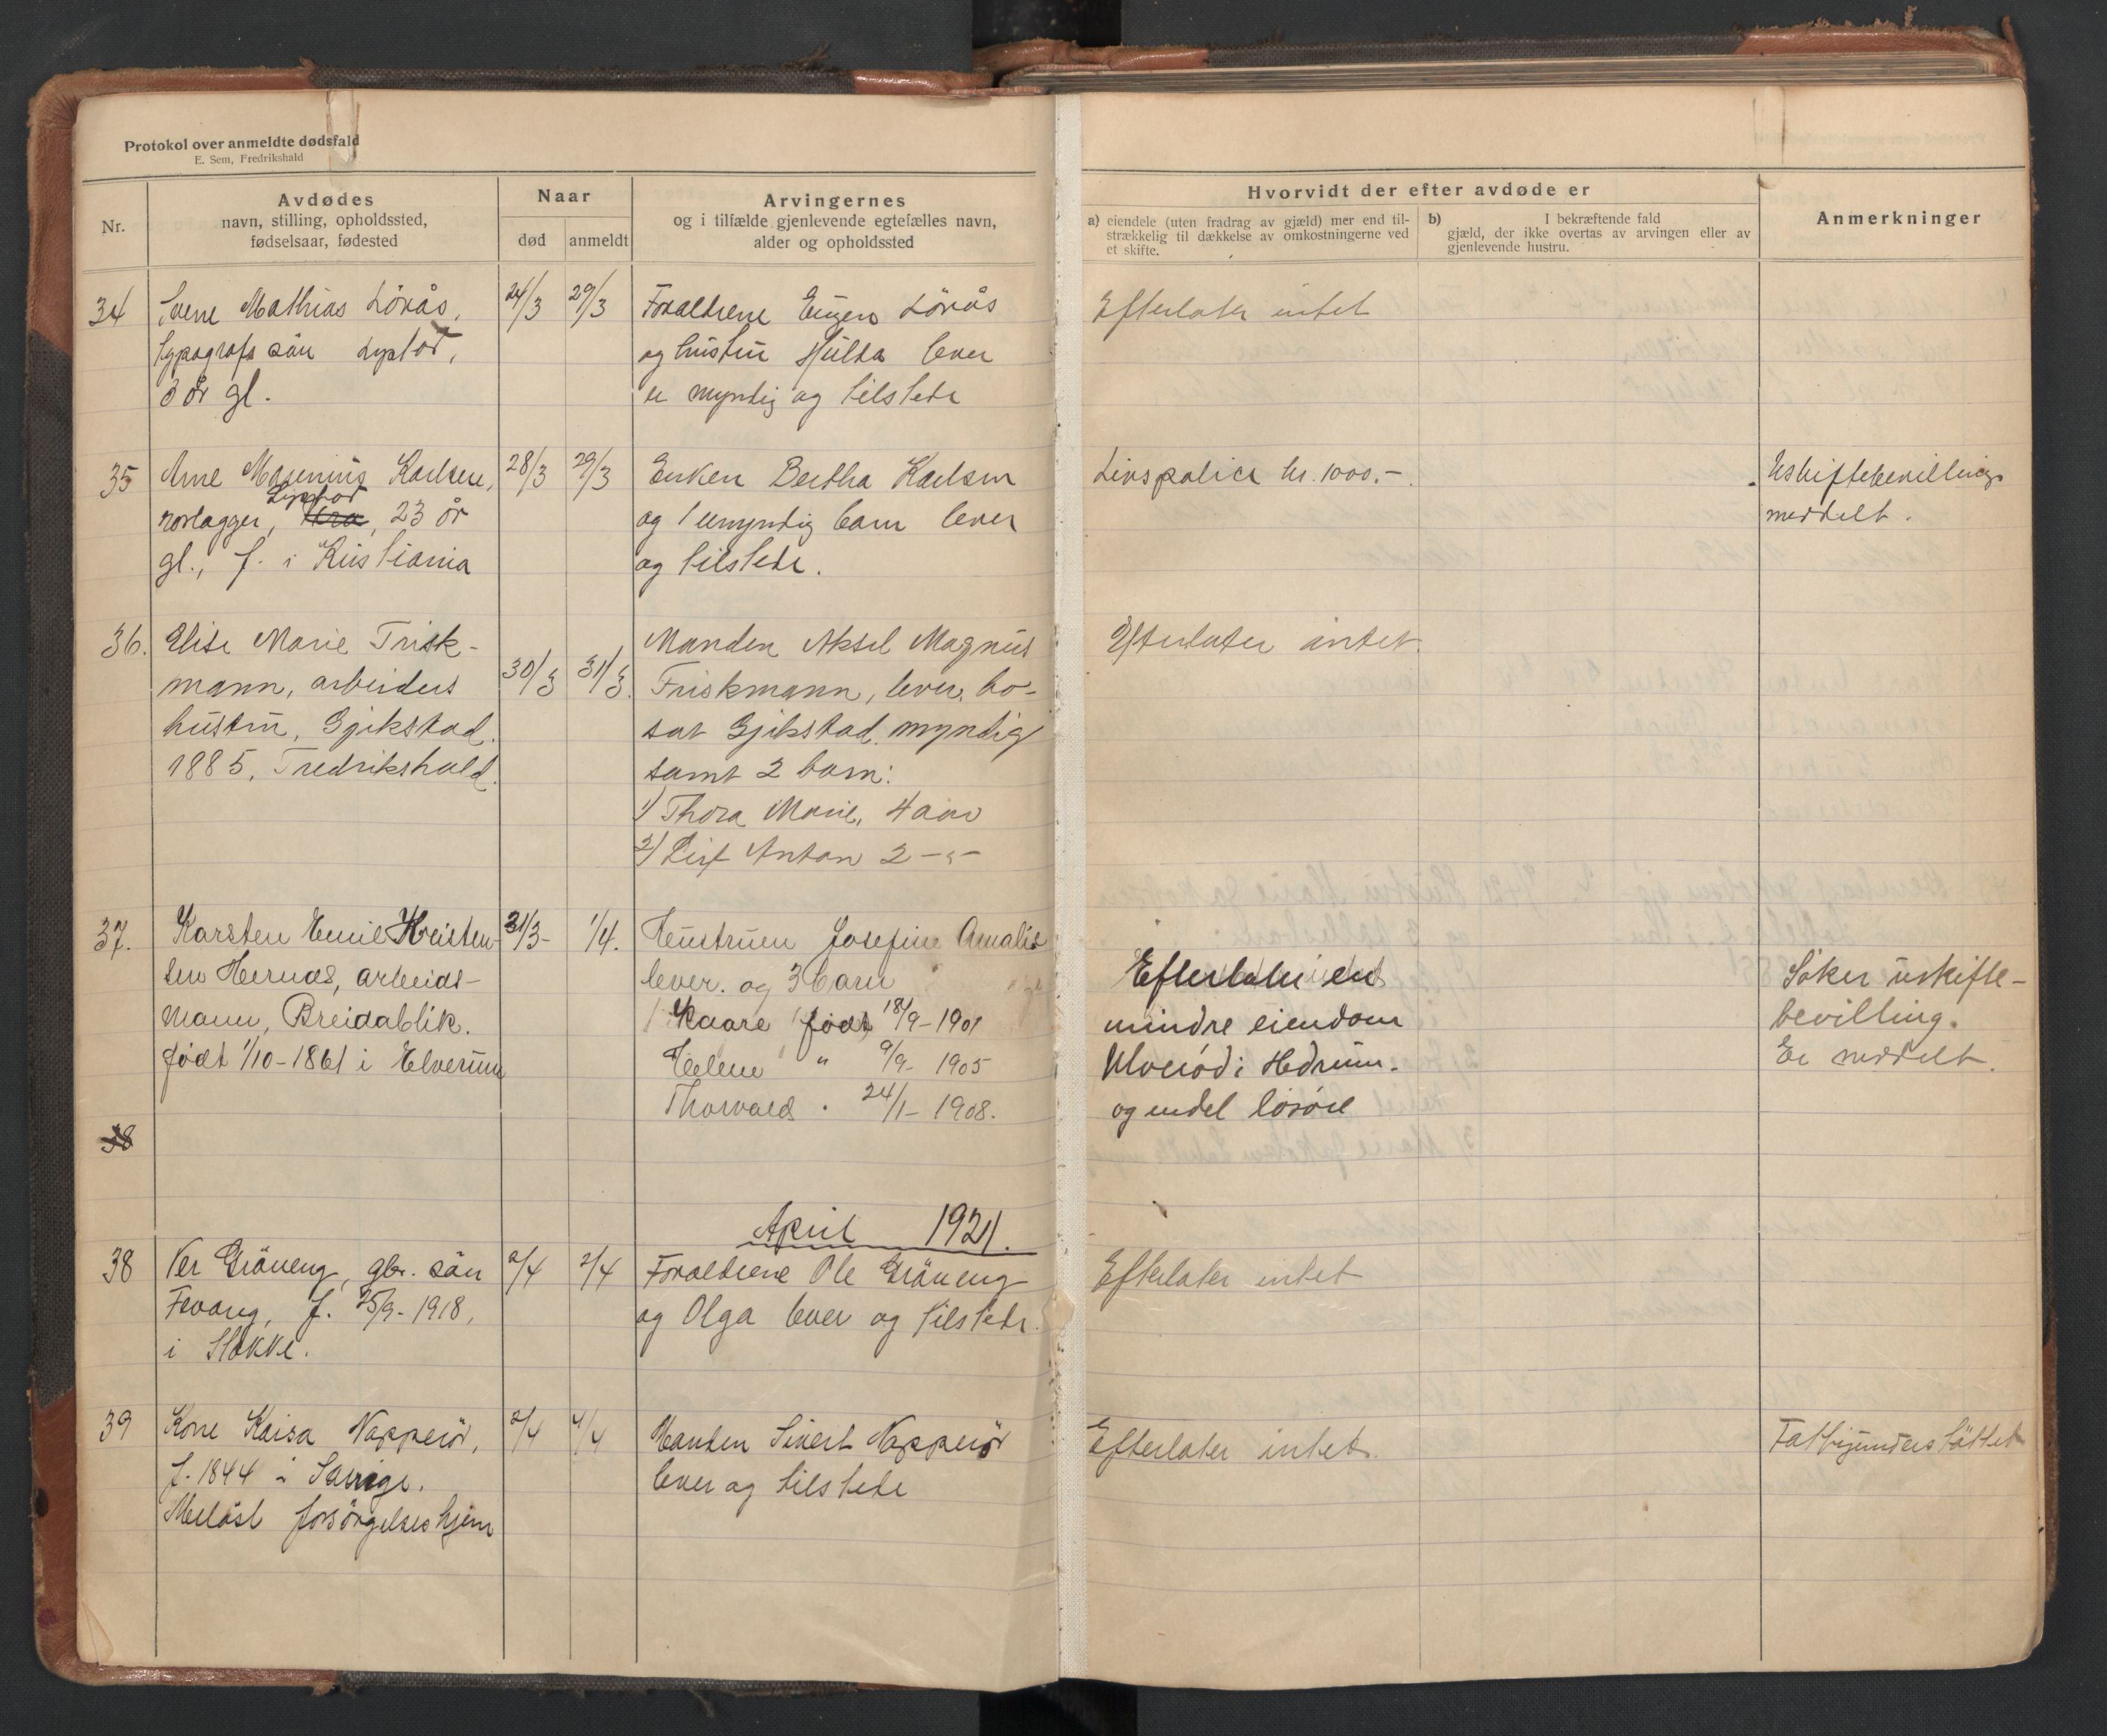 Protokol over anmeldte dødsfald
E. Sem, Fredrikshald
Nr.
Avdødes
navn, stilling, opholdssted,
fødselsaar, fødested
Naar
død
anmeldt
Arvingernes
og i tilfælde gjenlevende egtefælles navn,
alder og opholdssted
Hvorvidt der efter avdøde er
a) eiendele (uten fradrag av gjæld) mer end til-
strækkelig til dækkelse av omkostningerne ved
et skifte.
b) I bekræftende fald
gjæld, der ikke overtas av arvingen eller av
gjenlevende hustru.
Anmerkninger
34
Sverre Mathias Lövås,
typografs sön Lystad,
3 år gl.
24/3
29/3
Forældrene Eugen Lövås
og hustru Hulda lever
er myndig og tilstede
Efterlater intet
35
Arne Magnus Karlsen,
Lystad
rörlægger, 23 år
gl., f. i Kristiania
28/3
29/3
Enken Bertha Karlsen
og 1 umyndig barn lever
og tilstede.
Livspolice kr. 1000.-
Uskiftebevilling
meddelt.
36.
Elise Marie Frisk-
mann, arbeiders
hustru, Gjekstad.
1885, Fredrikshald.
30/3
31/3.
Manden Aksel Magnus
Friskmann, lever, bo-
sat Gjekstad, myndig
samt 2 barn:
1) Thora Marie, 4 aar
2) Leif Anton 2 -"-
Efterlater intet.
37.
Karsten Emil Kristen-
sen Hernæs, arbeids-
mann, Breidablik.
født 1/10-1861 i Elverum
31/3-
1/4.
Hustruen Josefine Amalie
lever. og 3 barn
Kaare født 18/9-1901
Helene " 9/9- 1905
Thorvald " 24/1- 1908.
Efterlater en
mindre eiendom
Ulverød i Hedrum.
og endel løsøre
Søker uskifte-
bevilling.
Er meddelt.
38
April 1921.
38
Per Gråneng, gbr. sön
Fevang, f. 25/9-1918,
i Stokke.
2/4
2/4
Forældrene Ole Gråneng
og Olga lever og tilstede.
Efterlater intet
39
Kone Kaisa Napperöd,
f. 1844 i Sverige.
Melöst forsörgelseshjem
2/4
4/4
Manden Sivert Napperöd
lever og tilstede
Efterlater intet.
Fattigunderstöttet